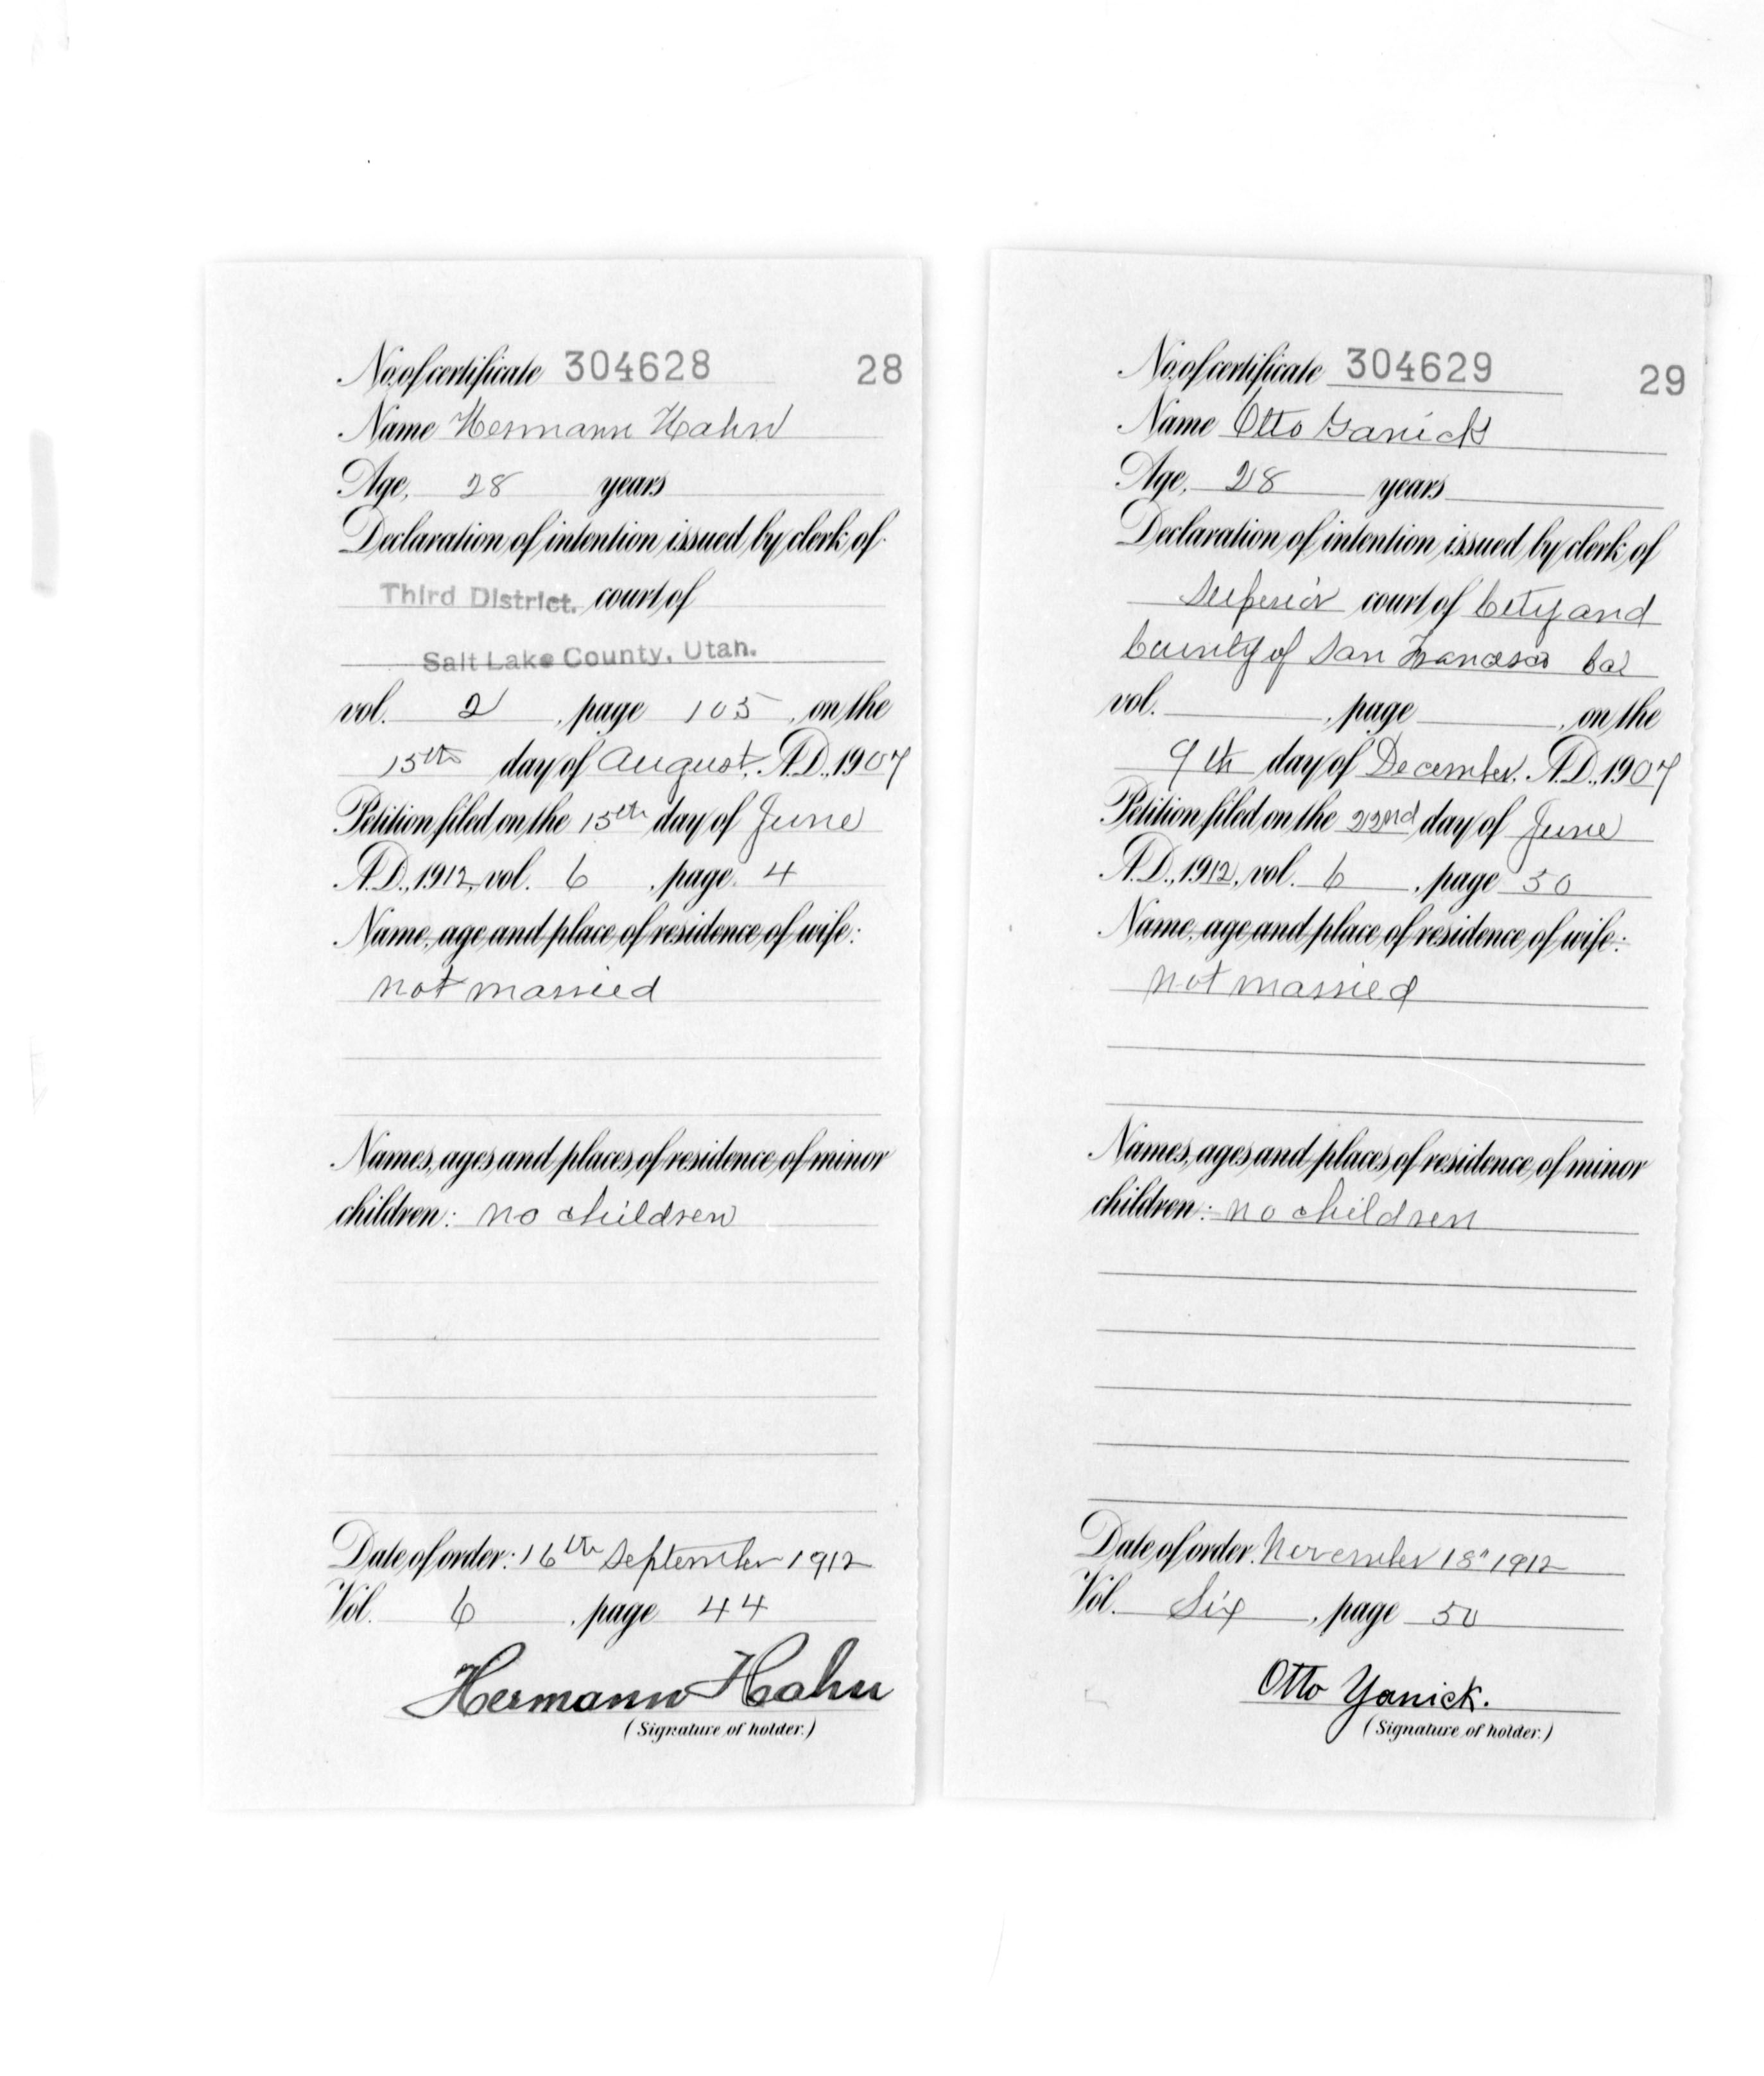 No. of certificate 304628 28
Name Hermann Hahn
Age, 28 years
Declaration of intention issued by clerk of
Third District. court of
Salt Lake County, Utah.
vol. 2, page 105, on the
15th day of August, A.D., 1907
Petition filed on the 15th day of June
A.D., 1912, vol. 6, page 4
Name, age and place of residence of wife:
not married
Names, ages and places of residence of minor
children: no children
Date of order: 16th September 1912
Vol. 6, page 44
Hermann Hahn
(Signature of holder.)
No. of certificate 304629 29
Name Otto Yanick
Age, 28 years
Declaration of intention issued by clerk of
Superior court of City and
County of San Francisco Cal
vol. , page , on the
9th day of December, A.D., 1907
Petition filed on the 22nd day of June
A.D., 1912, vol. 6, page 50
Name, age and place of residence of wife:
not married
Names, ages and places of residence of minor
children: no children
Date of order: November 18" 1912
Vol. Six, page 50
Otto Yanick.
(Signature of holder.)